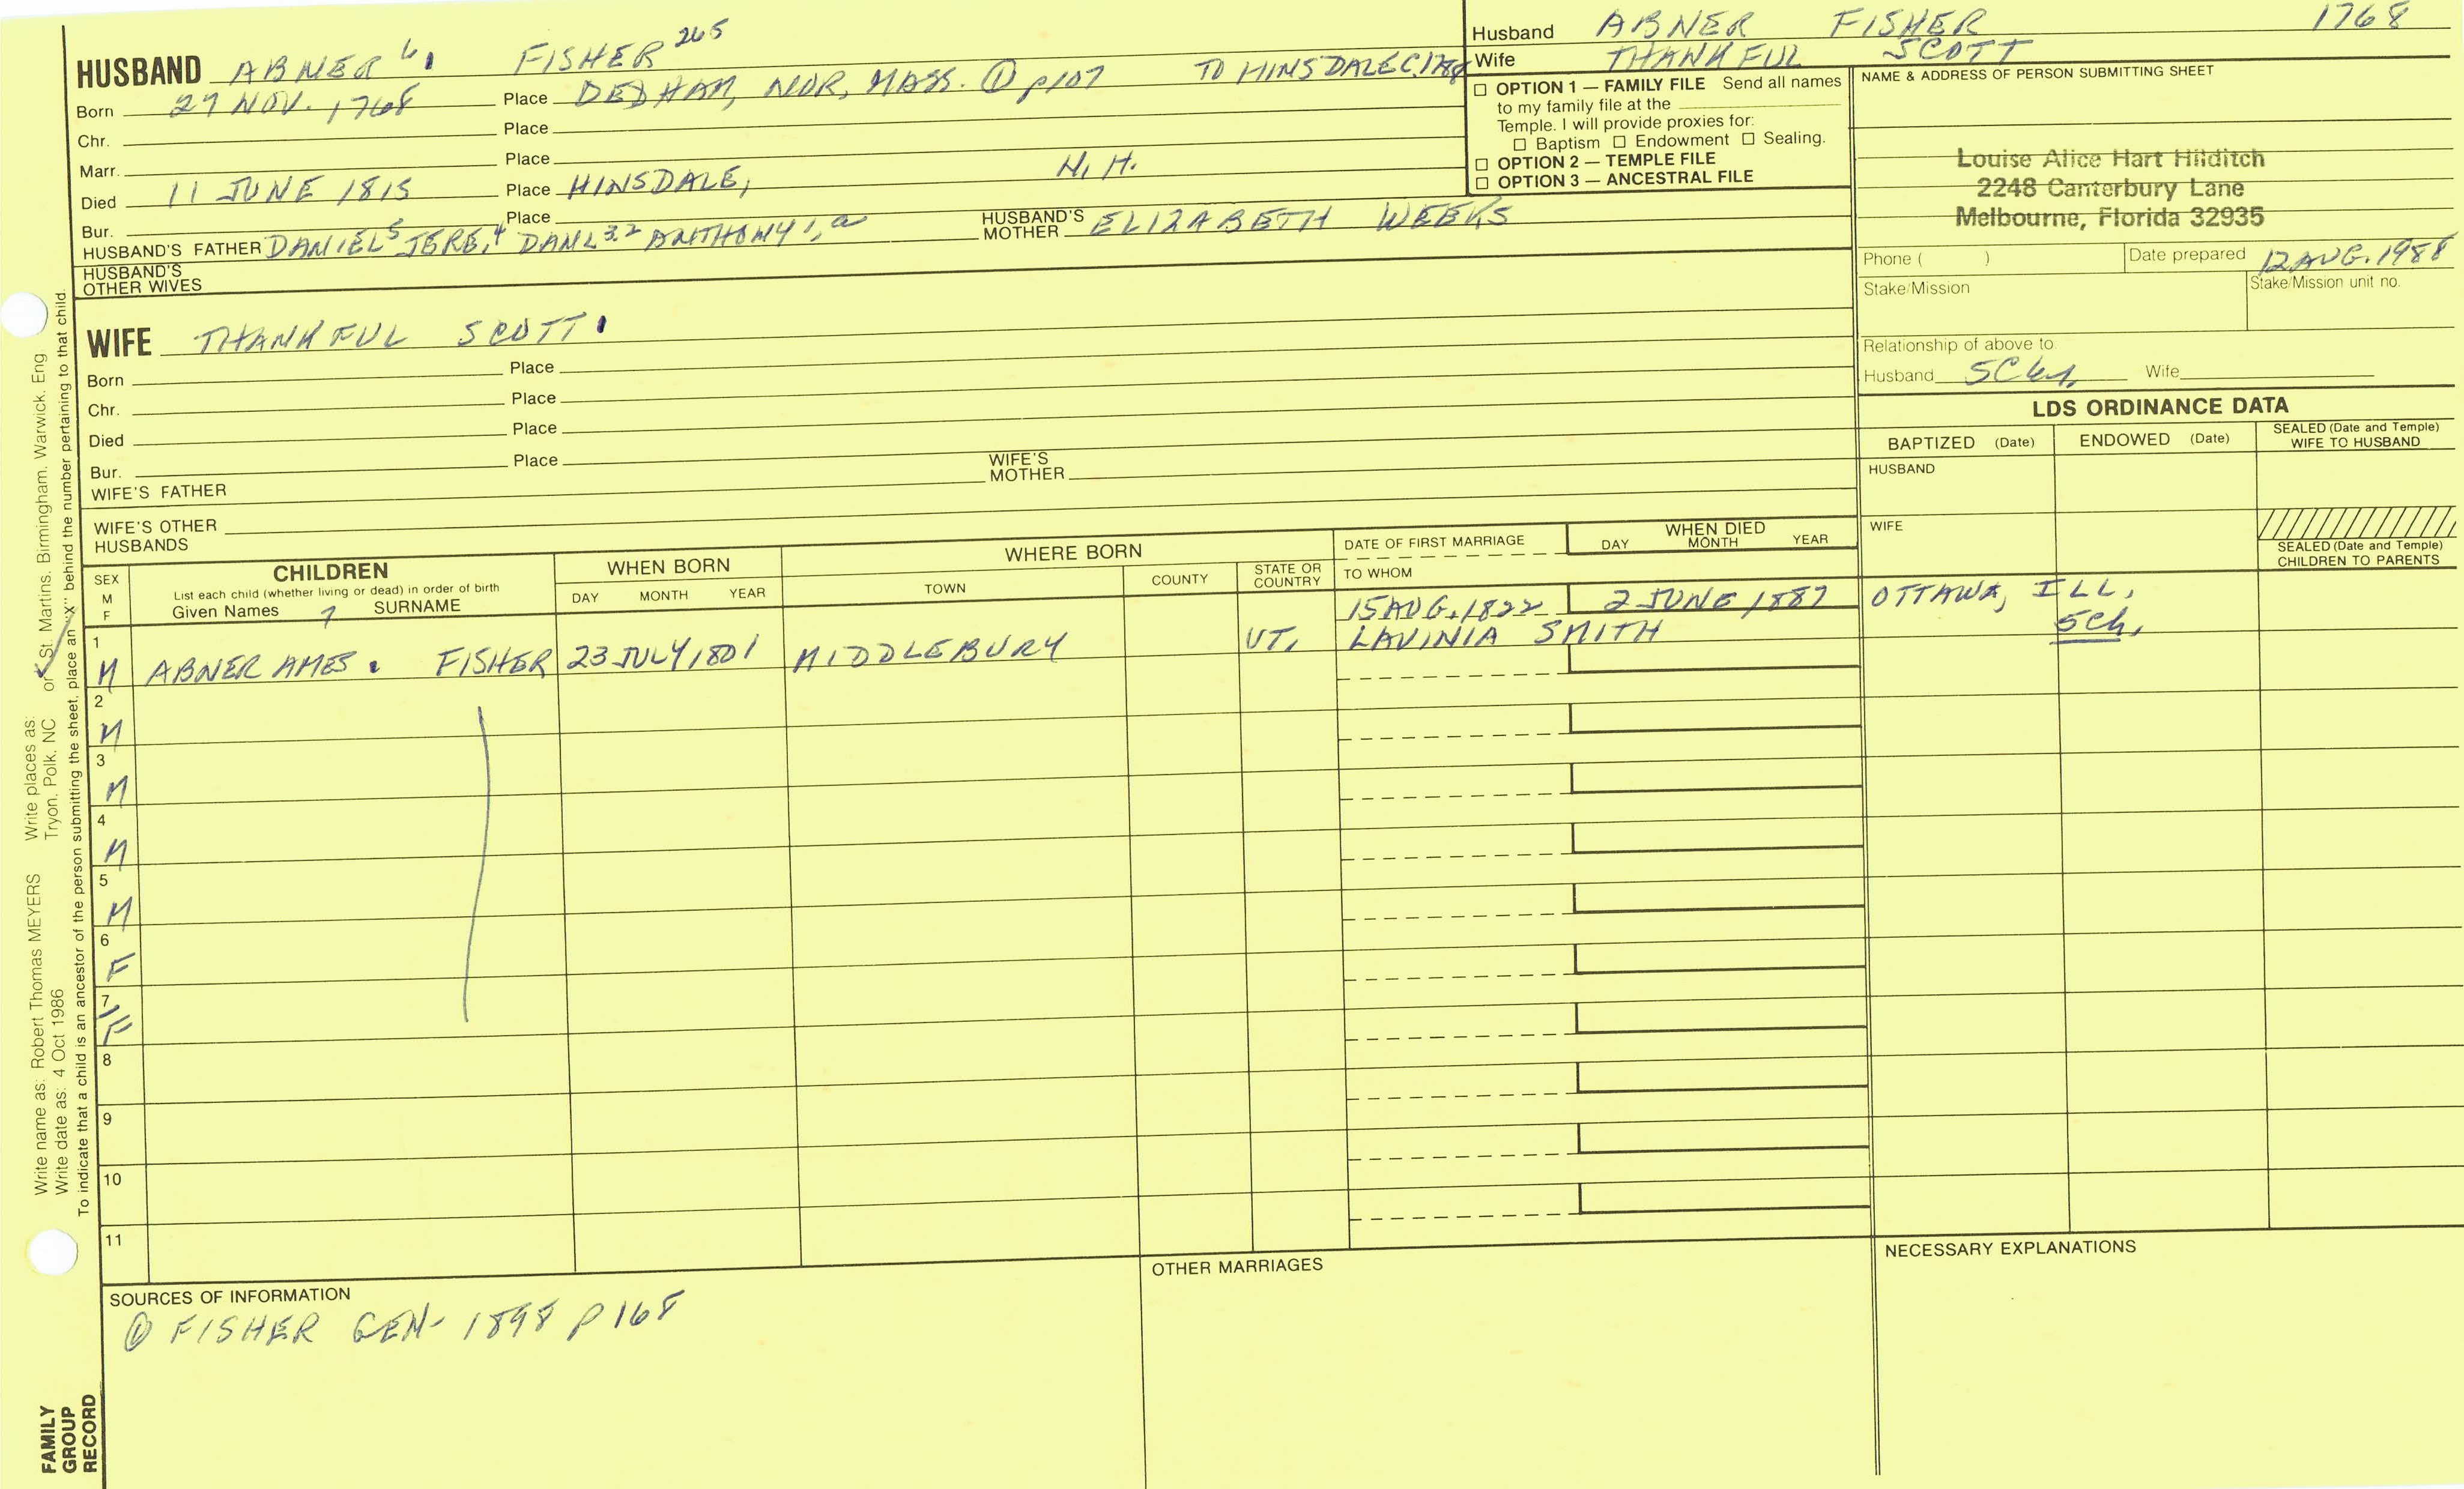 Husband ABNER FISHER 1768
Wife THANKFUL SCOTT
HUSBAND ABNER 6 FISHER 265
Born 27 NOV. 1768 Place DEDHAM, NOR, MASS. ① p107 TO HINSDALE C.
Chr. Place
Marr. Place
Died 11 JUNE 1815 Place HINSDALE, N.H.
Bur. Place
HUSBAND'S FATHER DANIEL5 JERE,4 DANL3,2 ANTHONY1,a HUSBAND'S MOTHER ELIZABETH WEEKS
HUSBAND'S
OTHER WIVES
☐ OPTION 1 — FAMILY FILE Send all names
to my family file at the
Temple. I will provide proxies for:
☐ Baptism ☐ Endowment ☐ Sealing.
☐ OPTION 2 — TEMPLE FILE
☐ OPTION 3 — ANCESTRAL FILE
NAME & ADDRESS OF PERSON SUBMITTING SHEET
Louise Alice Hart Hilditch
2248 Canterbury Lane
Melbourne, Florida 32935
Phone ( ) Date prepared 12 AUG. 1988
Stake/Mission Stake/Mission unit no.
Relationship of above to
Husband Wife
WIFE THANKFUL SCOTT
Born Place
Chr. Place
Died Place
Bur. Place
WIFE'S FATHER WIFE'S MOTHER
WIFE'S OTHER
HUSBANDS
LDS ORDINANCE DATA
BAPTIZED (Date) ENDOWED (Date) SEALED (Date and Temple) WIFE TO HUSBAND
HUSBAND
WIFE
SEALED (Date and Temple)
CHILDREN TO PARENTS
SEX M F CHILDREN WHEN BORN WHERE BORN DATE OF FIRST MARRIAGE WHEN DIED
List each child (whether living or dead) in order of birth DAY MONTH YEAR TOWN COUNTY STATE OR COUNTRY TO WHOM DAY MONTH YEAR
Given Names 7 SURNAME
15 AUG. 1822 2 JUNE 1887 OTTAWA, ILL,
1 M ABNER AMES FISHER 23 JULY 1801 MIDDLEBURY VT. LAVINIA SMITH 5ch.
2 M
3 M
4 M
5 M
6 F
7 F
8
9
10
11
SOURCES OF INFORMATION
① FISHER GEN- 1898 P 168
OTHER MARRIAGES
NECESSARY EXPLANATIONS
FAMILY
GROUP
RECORD
Write name as: Robert Thomas MEYERS Write places as:
Write date as: 4 Oct 1986 Tryon, Polk, NC or St. Martins, Birmingham, Warwick, Eng.
To indicate that a child is an ancestor of the person submitting the sheet, place an "X" behind the number pertaining to that child.